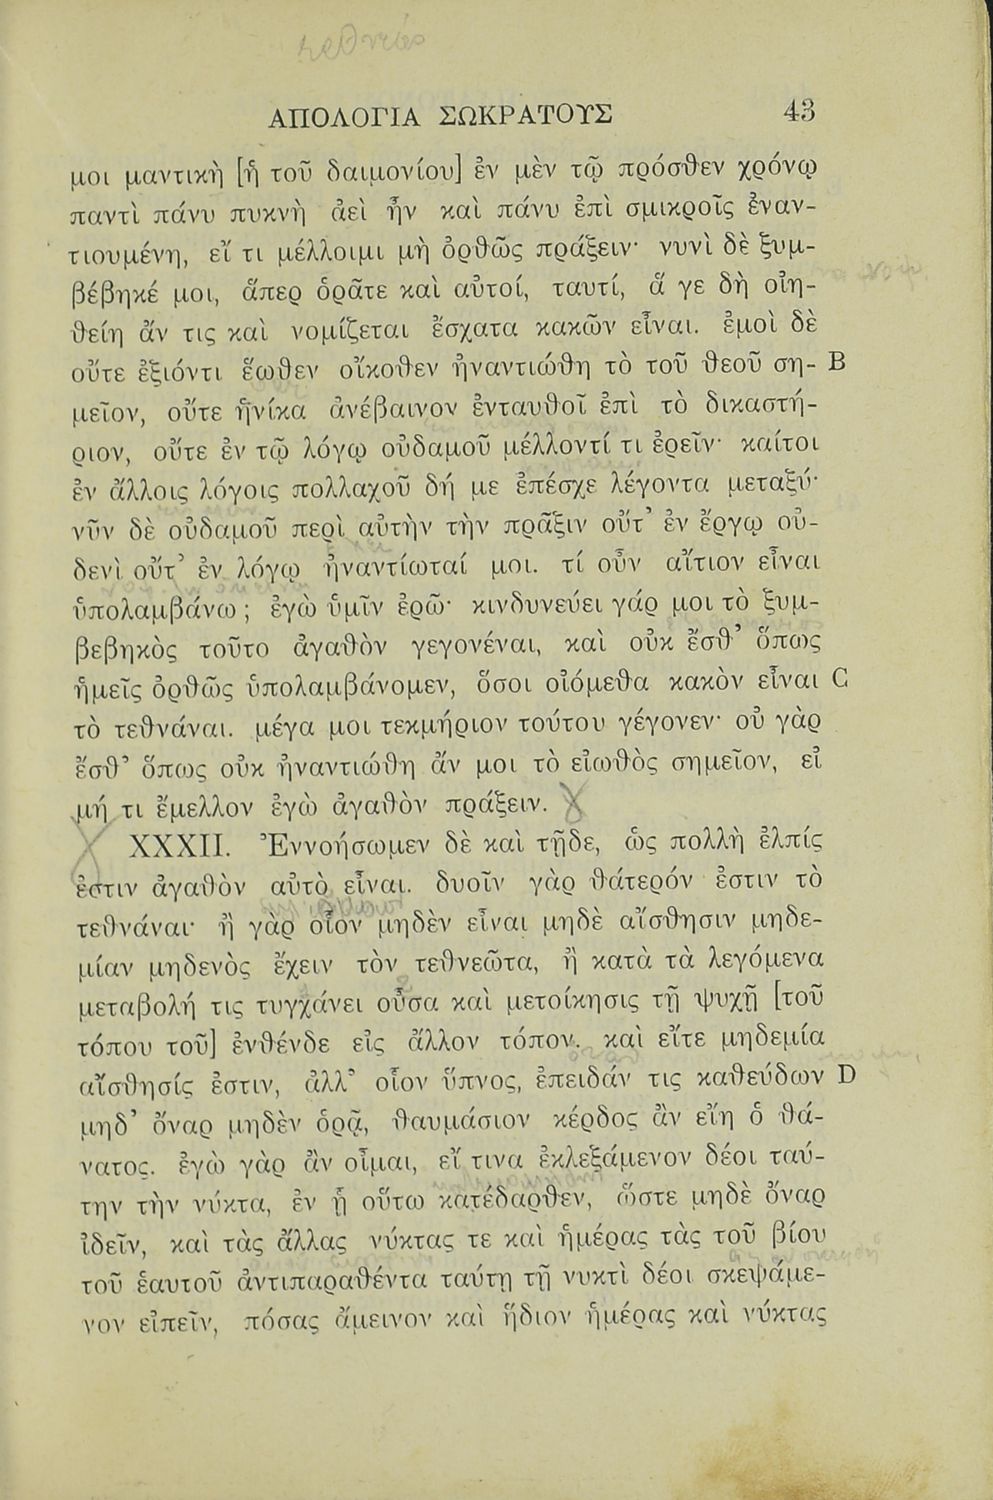 ΑΠΟΛΟΓΙΑ ΣΩΚΡΑΤΟΥΣ 43
μοι μαντικὴ [ἡ τοῦ δαιμονίου] ἐν μὲν τῷ πρόσθεν χρόνῳ
παντὶ πάνυ πυκνὴ ἀεὶ ἦν καὶ πάνυ ἐπὶ σμικροῖς ἐναν-
τιουμένη, εἴ τι μέλλοιμι μὴ ὀρθῶς πράξειν· νυνὶ δὲ ξυμ-
βέβηκέ μοι, ἅπερ ὁρᾶτε καὶ αὐτοί, ταυτί, ἅ γε δὴ οἰη-
θείη ἄν τις καὶ νομίζεται ἔσχατα κακῶν εἶναι. ἐμοὶ δὲ
οὔτε ἐξιόντι ἕωθεν οἴκοθεν ἠναντιώθη τὸ τοῦ θεοῦ ση- B
μεῖον, οὔτε ἡνίκα ἀνέβαινον ἐνταυθοῖ ἐπὶ τὸ δικαστή-
ριον, οὔτε ἐν τῷ λόγῳ οὐδαμοῦ μέλλοντί τι ἐρεῖν· καίτοι
ἐν ἄλλοις λόγοις πολλαχοῦ δή με ἐπέσχε λέγοντα μεταξύ·
νῦν δὲ οὐδαμοῦ περὶ αὐτὴν τὴν πρᾶξιν οὔτ’ ἐν ἔργῳ οὐ-
δενὶ οὔτ’ ἐν λόγῳ ἠναντίωταί μοι. τί οὖν αἴτιον εἶναι
ὑπολαμβάνω; ἐγὼ ὑμῖν ἐρῶ· κινδυνεύει γάρ μοι τὸ ξυμ-
βεβηκὸς τοῦτο ἀγαθὸν γεγονέναι, καὶ οὐκ ἔσθ’ ὅπως
ἡμεῖς ὀρθῶς ὑπολαμβάνομεν, ὅσοι οἰόμεθα κακὸν εἶναι C
τὸ τεθνάναι. μέγα μοι τεκμήριον τούτου γέγονεν· οὐ γὰρ
ἔσθ’ ὅπως οὐκ ἠναντιώθη ἄν μοι τὸ εἰωθὸς σημεῖον, εἰ
μή τι ἔμελλον ἐγὼ ἀγαθὸν πράξειν.
XXXII. Ἐννοήσωμεν δὲ καὶ τῇδε, ὡς πολλὴ ἐλπίς
ἐστιν ἀγαθὸν αὐτὸ εἶναι. δυοῖν γὰρ θάτερόν ἐστιν τὸ
τεθνάναι· ἢ γὰρ οἷον μηδὲν εἶναι μηδὲ αἴσθησιν μηδε-
μίαν μηδενὸς ἔχειν τὸν τεθνεῶτα, ἢ κατὰ τὰ λεγόμενα
μεταβολή τις τυγχάνει οὖσα καὶ μετοίκησις τῇ ψυχῇ [τοῦ
τόπου τοῦ] ἐνθένδε εἰς ἄλλον τόπον. καὶ εἴτε μηδεμία
αἴσθησίς ἐστιν, ἀλλ’ οἷον ὕπνος, ἐπειδάν τις καθεύδων D
μηδ’ ὄναρ μηδὲν ὁρᾷ, θαυμάσιον κέρδος ἂν εἴη ὁ θά-
νατος. ἐγὼ γὰρ ἂν οἶμαι, εἴ τινα ἐκλεξάμενον δέοι ταύ-
την τὴν νύκτα, ἐν ᾗ οὕτω κατέδαρθεν, ὥστε μηδὲ ὄναρ
ἰδεῖν, καὶ τὰς ἄλλας νύκτας τε καὶ ἡμέρας τὰς τοῦ βίου
τοῦ ἑαυτοῦ ἀντιπαραθέντα ταύτῃ τῇ νυκτὶ δέοι σκεψάμε-
νον εἰπεῖν, πόσας ἄμεινον καὶ ἥδιον ἡμέρας καὶ νύκτας